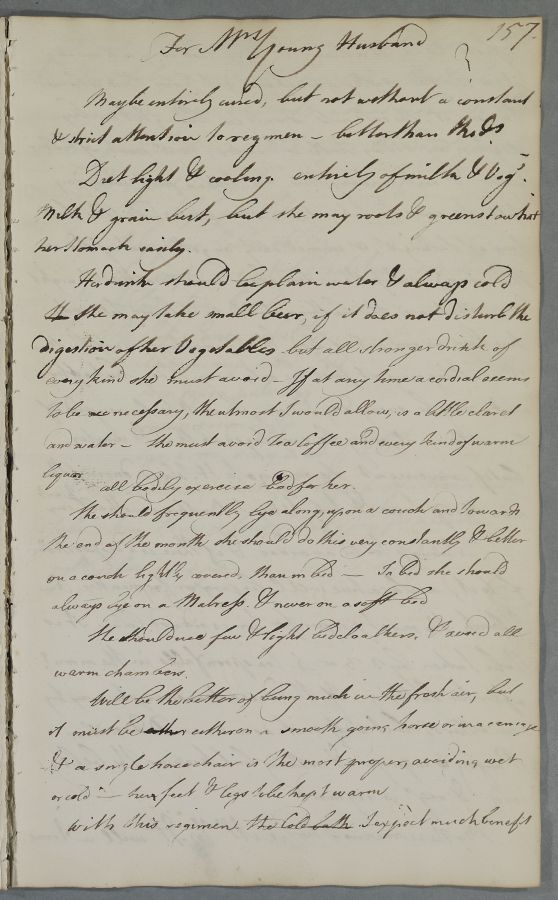 157.
For Mrs Young Husband
Maybe entirely cured, but not without a constant
& strict attention to regimen – better than
Diet light & cooling. entirely of milk & Vegs.
Milk & grain best, but she may roots & greens
her stomach easily.
Her drink should be plain water & always cold
She may take small beer, if it does not disturb the
digestion of her Vegetables but all stronger drink of
every kind she must avoid – If at any time a cordial seems
to be necessary, the utmost I would allow, is a little claret
and water – She must avoid Tea Coffee and every kind of warm
liquor
all bodily exercise bad for her.
She should frequently lye along, upon a couch and towards
the end of the month she should do this very constantly & better
on a couch lightly covered, than in bed – In bed she should
always lye on a Matress & never on a soft bed
She should use few & light bedcloathes, & avoid all
warm chambers.
Will be the better of being much in the fresh air, but
it must be either on a smooth going horse or in a carriage
& a single horse chair is the most proper, avoiding wet
or cold – her feet & legs to be kept warm
With this regimen the Cold bath I expect much benefit